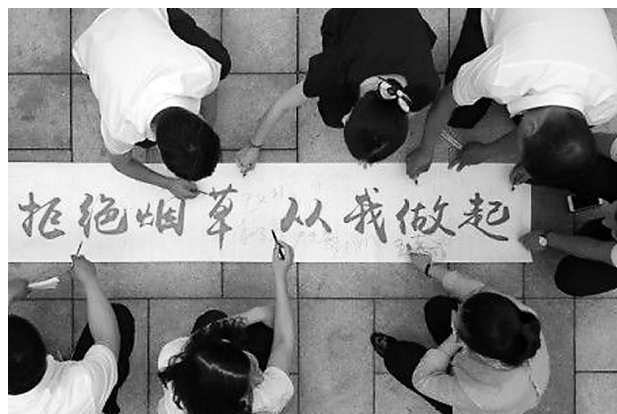 拒绝烟草 从我做起